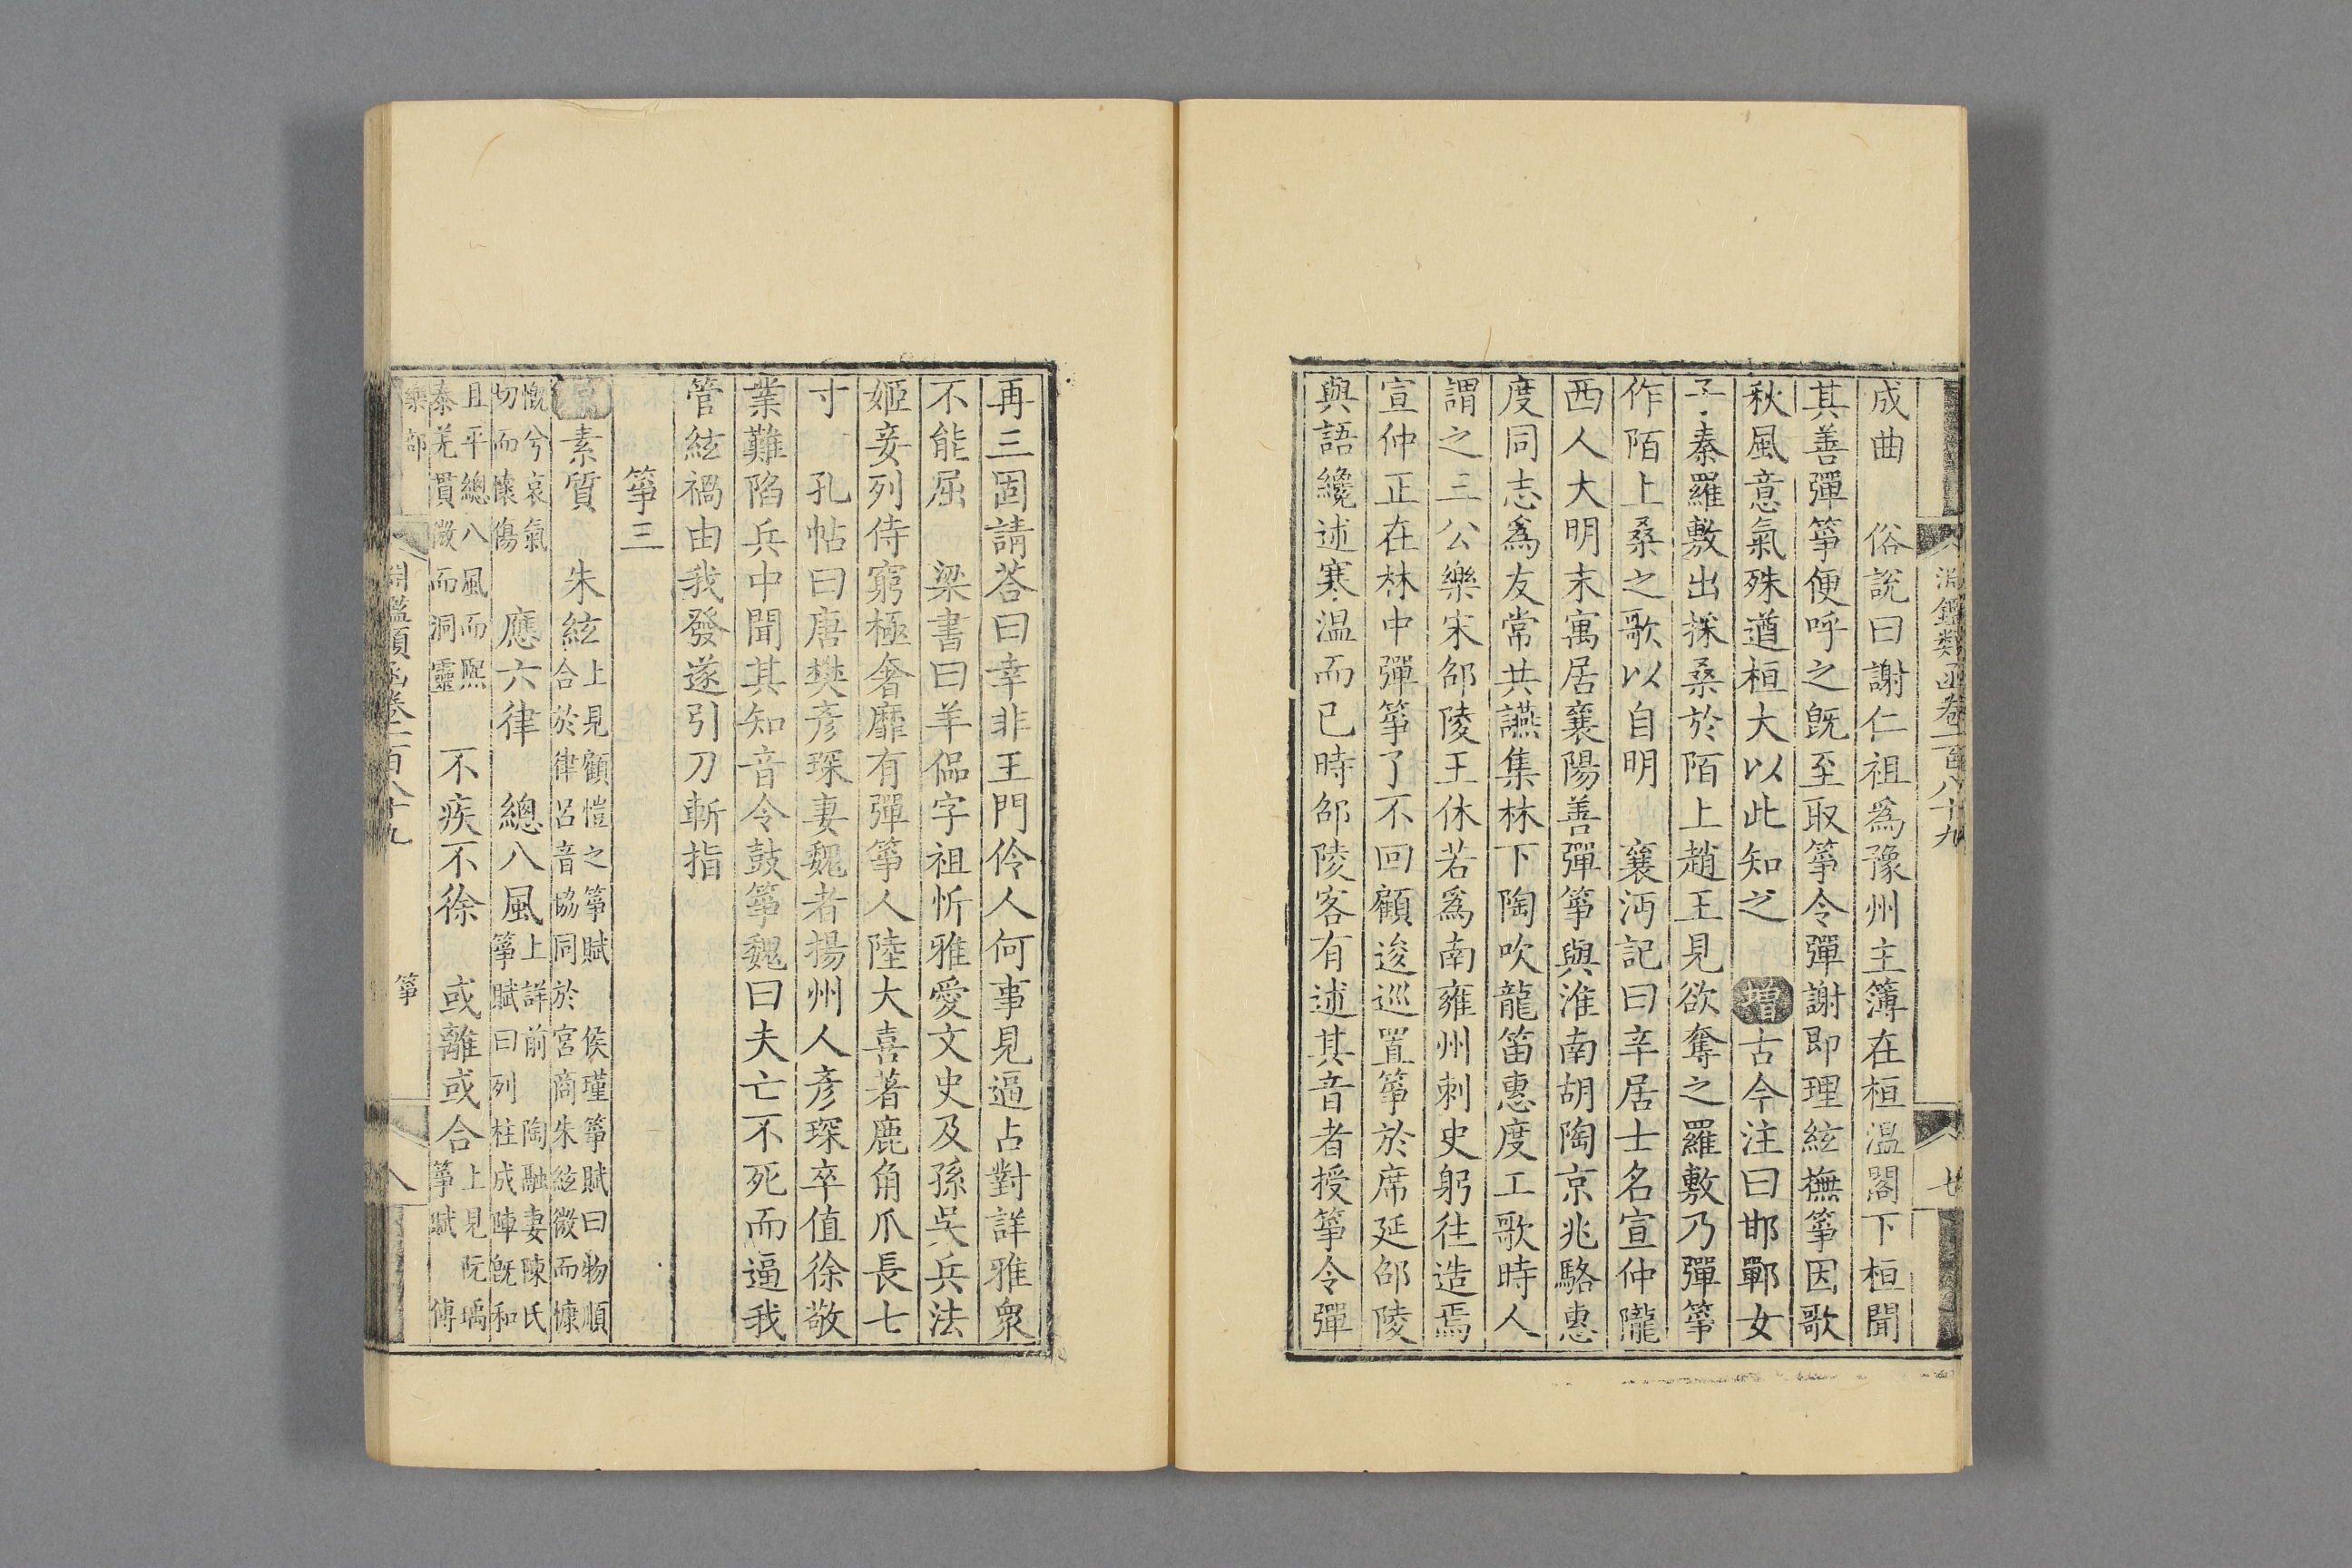 淵鑑類函卷一百八十九
成曲　俗說曰謝仁祖爲豫州主簿在桓温閣下桓聞
其善彈箏便呼之旣至取箏令彈謝即理絃撫箏因歌
秋風意氣殊遒桓大以此知之　增古今注曰邯鄲女
子秦羅敷出採桑於陌上趙王見欲奪之羅敷乃彈箏
作陌上桑之歌以自明　襄沔記曰辛居士名宣仲隴
西人大明末寓居襄陽善彈箏與淮南胡陶京兆駱惠
度同志爲友常共讌集林下陶吹龍笛惠度工歌時人
謂之三公樂宋邵陵王休若爲南雍州刺史躬往造焉
宣仲正在林中彈箏了不回顧逡巡置箏於席延邵陵
與語纔述寒温而已時邵陵客有述其音者授箏令彈
再三固請荅曰幸非王門伶人何事見逼占對詳雅衆
不能屈　梁書曰羊侃字祖忻雅愛文史及孫吳兵法
姬妾列侍窮極奢靡有彈箏人陸大喜著鹿角爪長七
寸　孔帖曰唐樊彥琛妻魏者揚州人彥琛卒值徐敬
業難陷兵中聞其知音令鼓箏魏曰夫亡不死而逼我
管絃禍由我發遂引刀斬指
箏三
素質　朱絃上見顧愷之箏賦　侯瑾箏賦曰物順
合於律呂音協同於宮商朱絃微而慷
慨兮哀氣
切而懷傷　應六律　總八風上詳前　陶融妻陳氏
箏賦曰列柱成陣旣和
且平總八風而熈
泰羌貫微而洞靈　不疾不徐　或離或合上見阮瑀
箏賦　傅
樂部　淵鑑類函卷一百八十九　箏